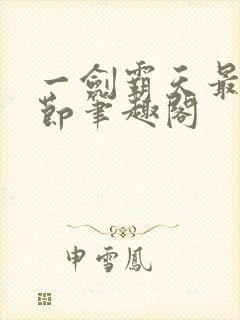 一劍霸天最
節筆趣閣
申雪鳳